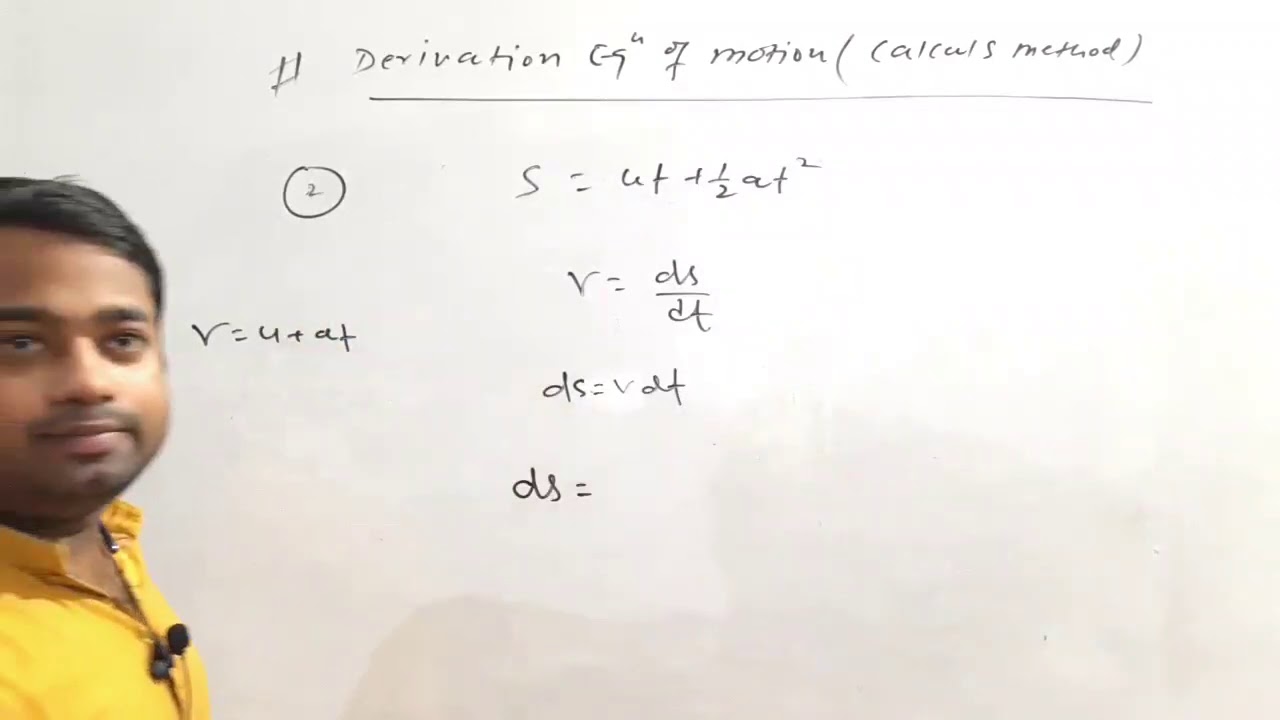 # Derivation Eqⁿ of motion (calculs method)
② S = ut + ½at²
v = ds/dt
v = u + at
ds = v dt
ds =